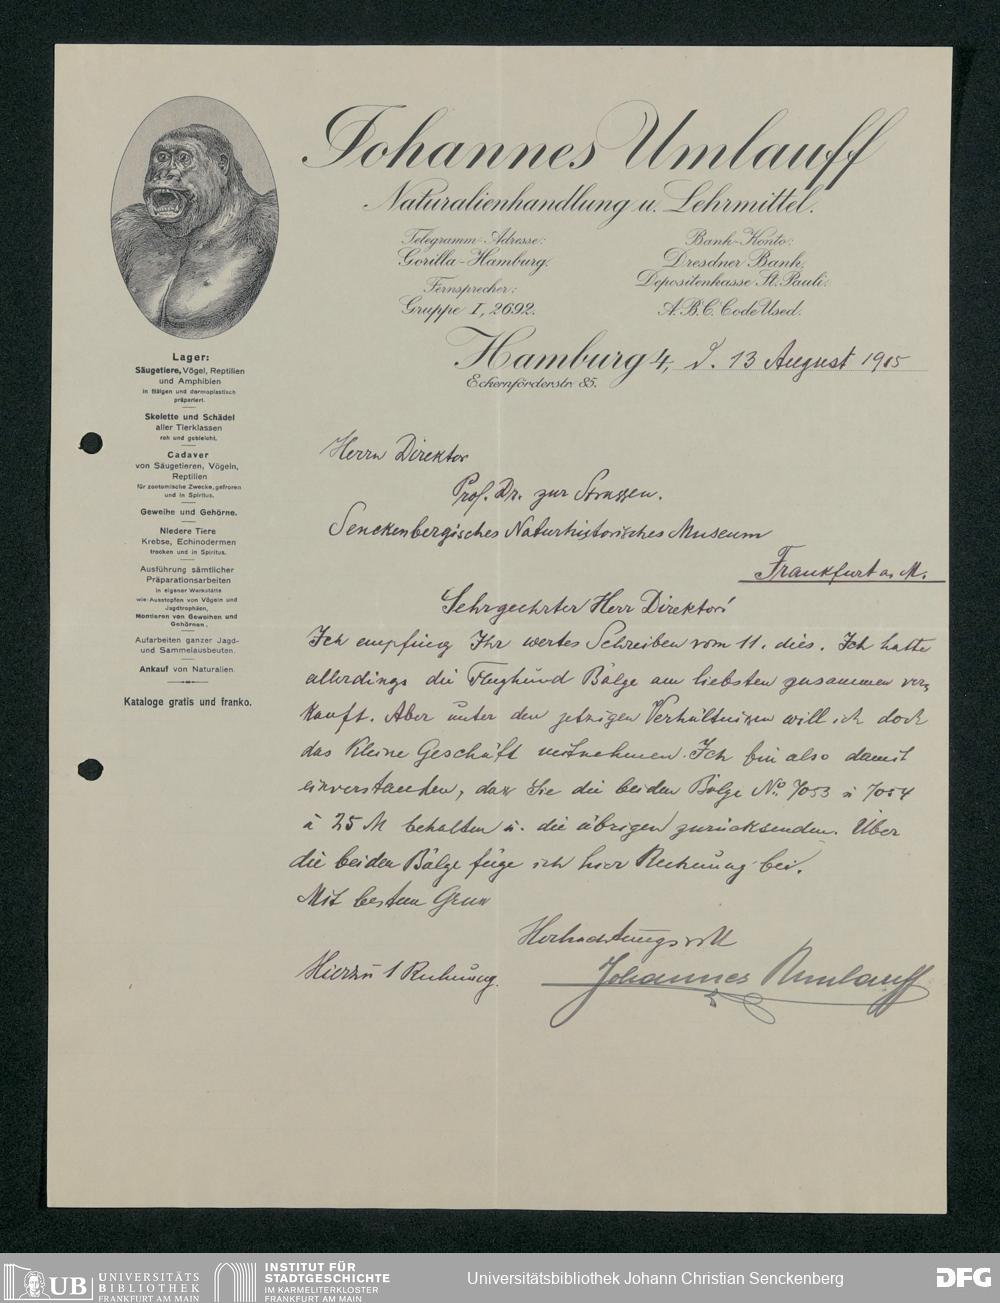 Johannes Umlauff
Naturalienhandlung u. Lehrmittel.
Telegramm-Adresse:
Gorilla-Hamburg.
Fernsprecher:
Gruppe I, 2692.
Bank-Konto:
Dresdner Bank,
Depositenkasse St. Pauli.
A.B.C. Code Used.
Hamburg 4, d. 13 August 1915
Eckernförderstr. 85.
Lager:
Säugetiere, Vögel, Reptilien
und Amphibien
in Bälgen und dermoplastisch
präpariert.
Skelette und Schädel
aller Tierklassen
roh und gebleicht.
Cadaver
von Säugetieren, Vögeln,
Reptilien
für zootomische Zwecke, gefroren
und in Spiritus.
Geweihe und Gehörne.
Niedere Tiere
Krebse, Echinodermen
trocken und in Spiritus.
Ausführung sämtlicher
Präparationsarbeiten
in eigener Werkstätte
wie: Ausstopfen von Vögeln und
Jagdtrophäen,
Montieren von Geweihen und
Gehörnen.
Aufarbeiten ganzer Jagd-
und Sammelausbeuten.
Ankauf von Naturalien.
Kataloge gratis und franko.
Herrn Direktor
Prof. Dr. zur Strassen.
Senckenbergisches Naturhistorisches Museum
Frankfurt a. M.
Sehrgeehrter Herr Direktor!
Ich empfing Ihr wertes Schreiben vom 11. dies. Ich hatte
allerdings die Flughund Bälge am liebsten zusammen ver-
kauft. Aber unter den jetzigen Verhältnissen will ich doch
das kleine Geschäft mitnehmen. Ich bin also damit
einverstanden, dass Sie die beiden Bälge No. 7053 u 7054
à 25 M behalten u. die übrigen zurücksenden. Über
die beiden Bälge füge ich hier Rechnung bei.
Mit bestem Gruss
Hochachtungsvoll
Johannes Umlauff
Hierzu 1 Rechnung.
UB UNIVERSITÄTS
BIBLIOTHEK
FRANKFURT AM MAIN
INSTITUT FÜR
STADTGESCHICHTE
IM KARMELITERKLOSTER
FRANKFURT AM MAIN
Universitätsbibliothek Johann Christian Senckenberg
DFG